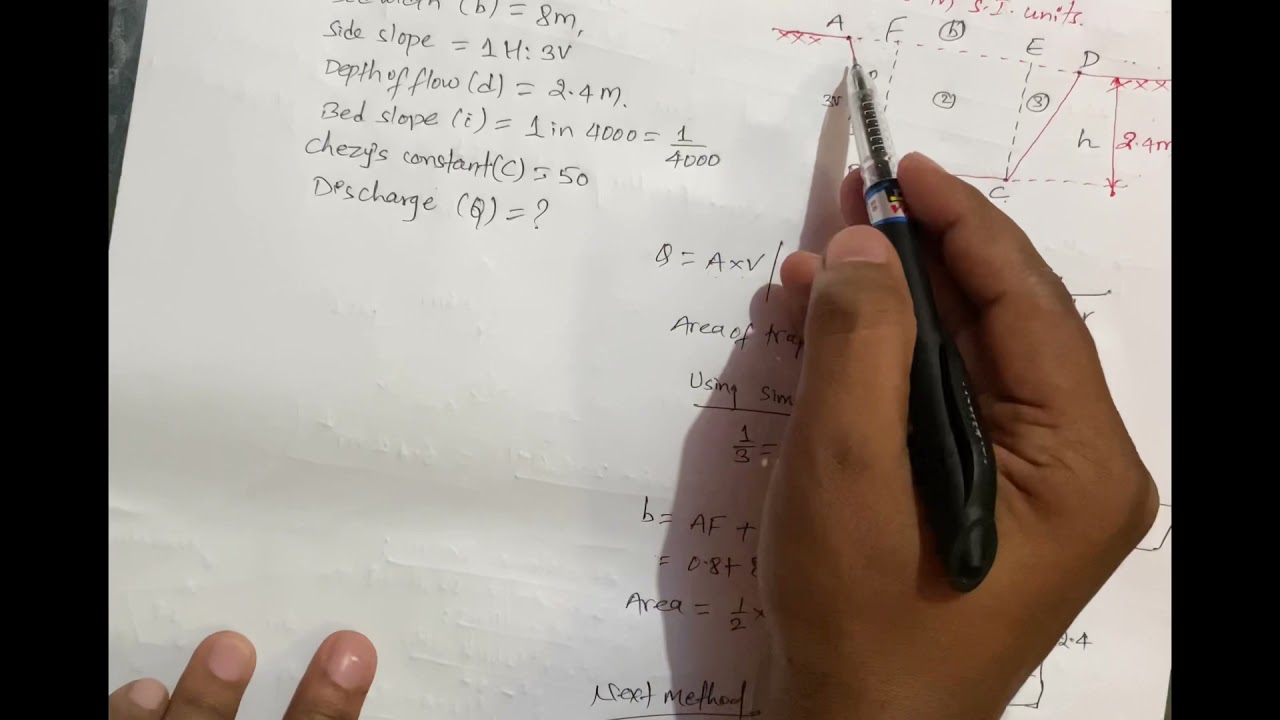 width (b) = 8m,
Side slope = 1H: 3V
Depth of flow (d) = 2.4m.
Bed slope (i) = 1 in 4000 = 1/4000
Chezy's constant(C) = 50
Descharge (Q) = ?
S.I. units.
A F (b) E D
3V (2) (3) h 2.4m
C
Q = A×V
Area of
Using
1/3 =
b = AF +
= 0.8+
Area = 1/2 ×
2.4
Next method